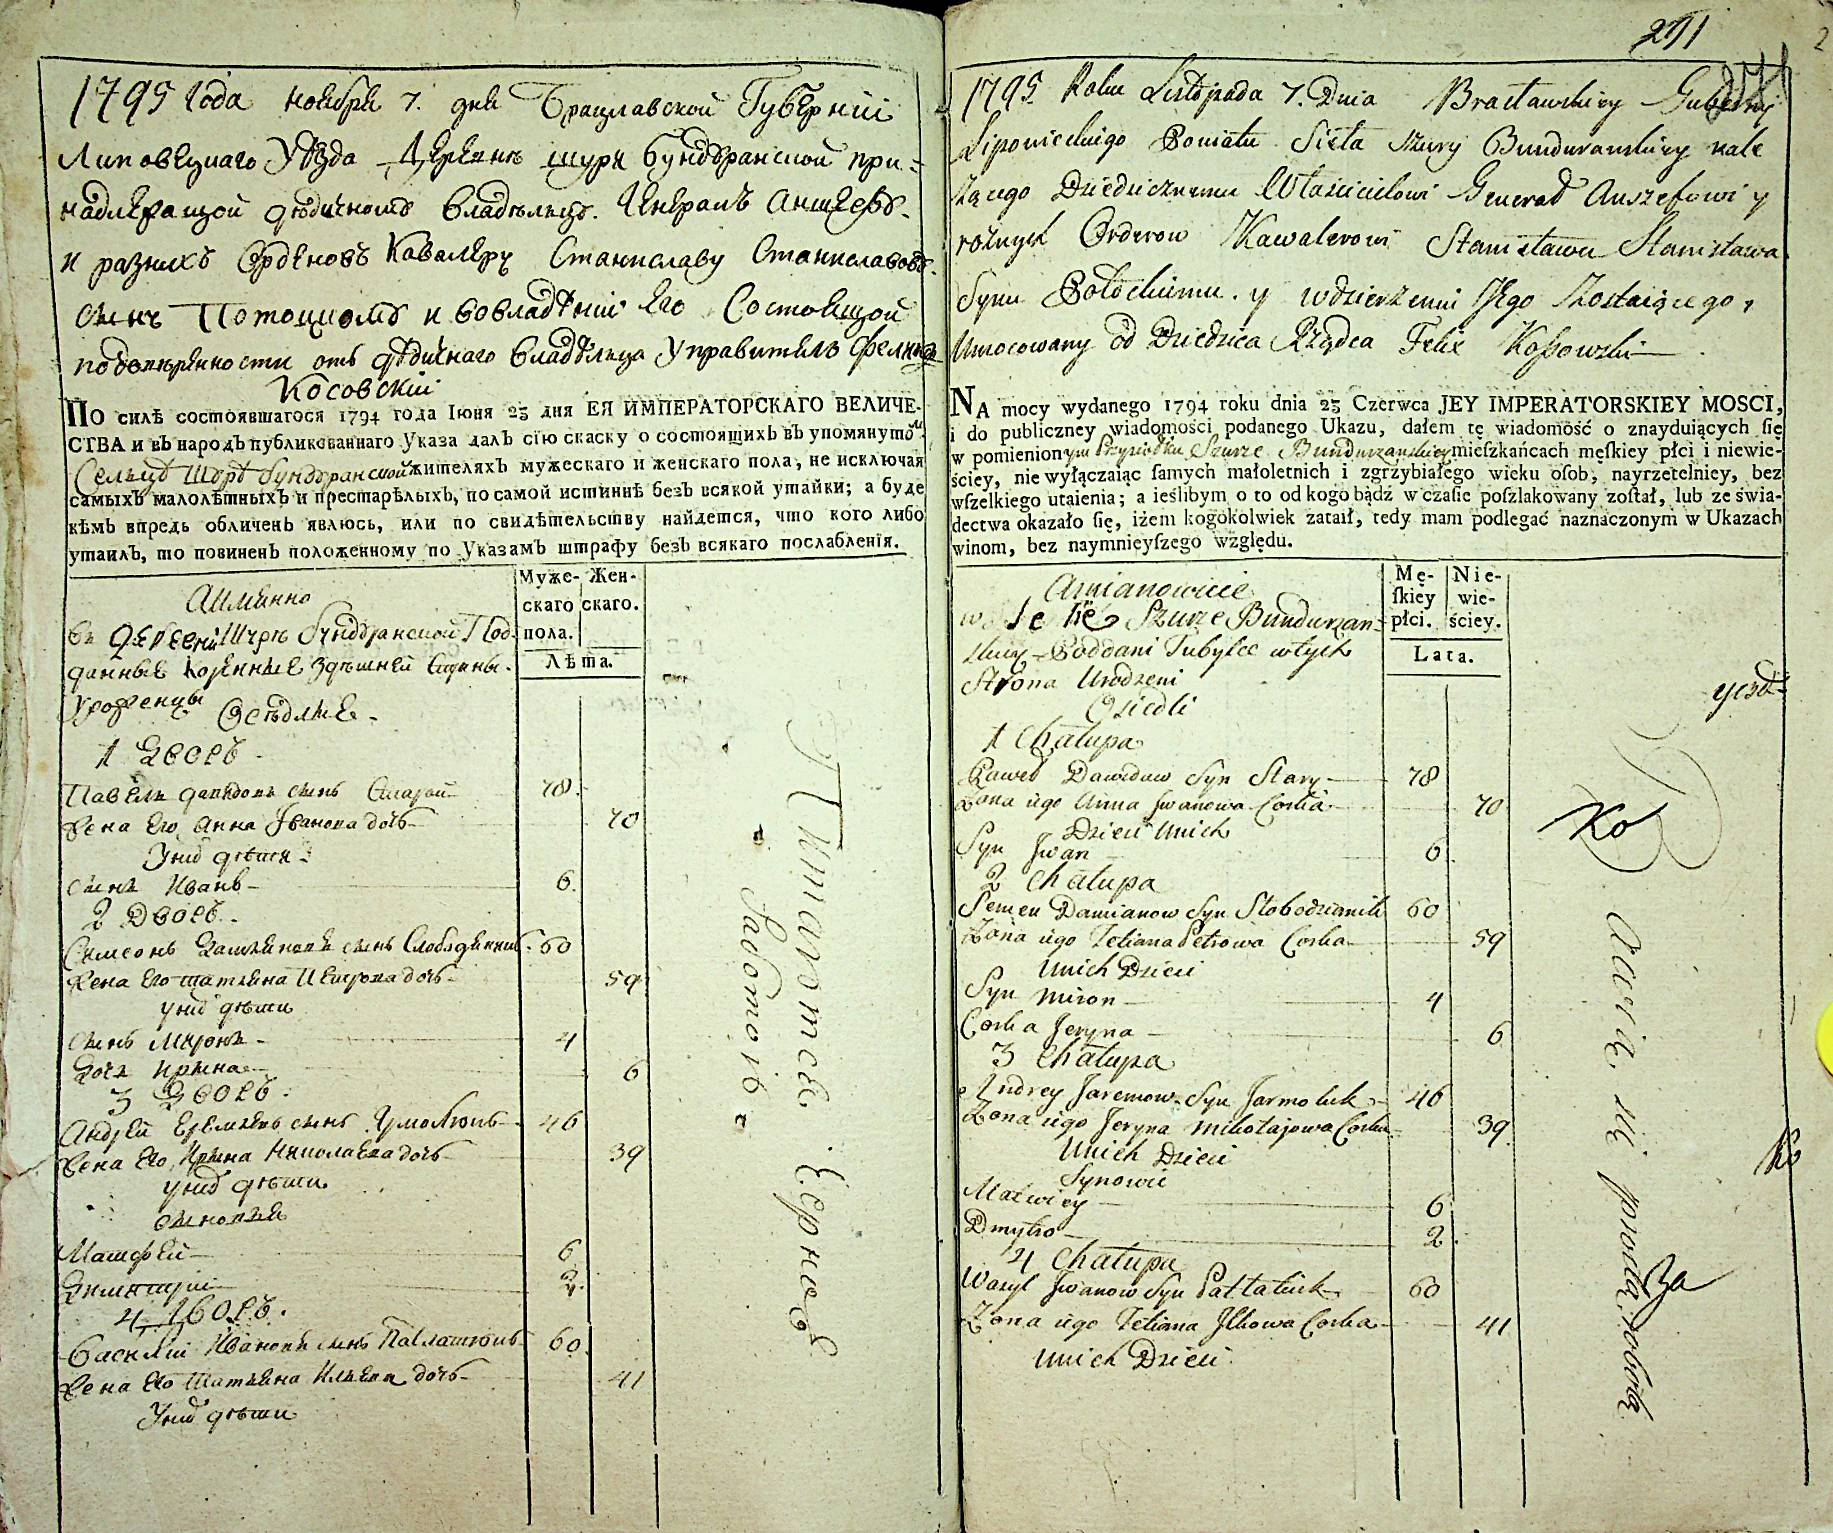 1795 Года ноября 7. дня Брацлавской Губернiи
Липовецкаго Уѣзда Деревнѣ Щуры Бундуранской при-
надлежащой дѣдичномъ Владѣльцу. Генералъ Аншефъ.
и разныхъ Орденовъ Кавалеру Станиславу Станиславовъ.
сынъ Потоцкомъ и вовладѣнiи Его Состоящой
подовѣренности отъ дѣдичнаго владѣльца Управитель Феликсъ
Косовскiй
ПО силѣ состоявшагося 1794 года Iюня 23 дня ЕЯ ИМПЕРАТОРСКАГО ВЕЛИЧЕ-
СТВА и въ народъ публикованнаго Указа далъ сiю скаску о состоящихъ въ упомянутом
Сельцѣ Щурѣ Бундуранской жителяхъ мужескаго и женскаго пола, не исключая
самыхъ малолѣтныхъ и престарѣлыхъ, по самой истиннѣ безъ всякой утайки; а буде
кѣмъ впредь обличенъ явлюсь, или по свидѣтельству найдется, что кого либо
утаилъ, то повиненъ положенному по Указамъ штрафу безъ всякаго послабленiя.
Муже- Жен-
скаго скаго.
пола.
Лѣта.
Аимянно
въ Деревни Щурѣ Бундуранской Под-
данные коренные здѣшней Стороны.
Уроженцы Осѣдлые.
1 Дворъ.
Павелъ Давидовъ сынъ Старой 78.
Жена Его Анна Иванова дочь 70
Унихъ дѣти
сынъ Иванъ 6.
2 Дворъ.
Симеонъ Дамяновъ сынъ Слободяникъ 60
Жена Его Татьяна Петрова дочь 59
унихъ дѣти
сынъ Миронъ 4
Дочь Ирына 6
3 Дворъ.
Андрей Еремѣевъ сынъ Ярмолюкъ 46
Жена Его Ирына Николаева дочь 39
унихъ дѣти
сыновья
Матфей 6
Димитрiй 2.
4 Дворъ.
Василiй Ивановъ сынъ Паллатюкъ 60.
Жена Его Татьяна Ильина дочь 41
Унихъ дѣти
291
1795 Roku Listopada 7. Dnia Bracławskiey Guberny
Lipowieckiego Powiatu Sieła Szury Bunduranskiey nale
żącego Dziedzicznemu Właścicielowi Generał Anszefowi y
roznych Orderow Kawalerowi Stanisławu Stanisława
Synu Potockiemu. y wdzierzeniu Jego Zostaiącego,
Umocowany od Dziedzica Rządca Felix Kossowski
NA mocy wydanego 1794 roku dnia 23 Czerwca JEY IMPERATORSKIEY MOSCI,
i do publiczney wiadomości podanego Ukazu, dałem tę wiadomość o znayduiących ſię
w pomienionym Przysiołku Szurze Bundurzanskiey mieſzkańcach męſkiey płci i niewie-
ściey, nie wyłączaiąc ſamych małoletnich i zgrzybiałego wieku oſob, nayrzetelniey, bez
wſzelkiego utaienia; a ieślibym o to od kogo bądź w czaſie poſzlakowany zoſtał, lub ze świa-
dectwa okazało ſię, iżem kogokolwiek zataił, tedy mam podlegać naznaczonym w Ukazach
winom, bez naymnieyſzego względu.
Mę- Nie-
ſkiey wie-
płci. ściey.
Lata.
Amianowicie
w Siele Szurze Bundurzan-
skiey Poddani Tubylce wtych
Strona Urodzeni
Osiedli
1 Chałupa
Paweł Dawidow Syn Stary 78
Zona iego Anna Jwanowa Corka 70
Dzieci Unich
Syn Jwan 6
2 Chałupa
Semen Damianow Syn Słobodzianik 60
Zona iego Tetiana Petrowa Corka 59
Unich Dzieci
Syn Miron 4
Corka Jeryna 6
3 Chałupa
Andrey Jaremow Syn Jarmoluk 46
Zona iego Jeryna Mikołajowa Corka 39
Unich Dzieci
Synowie
Matwiey 6
Dmytro 2.
4 Chałupa
Wasyl Jwanow Syn Pałłatiuk 60
Zona iego Tetiana Jlkowa Corka 41
Unich Dzieci
Ko
Ko
За